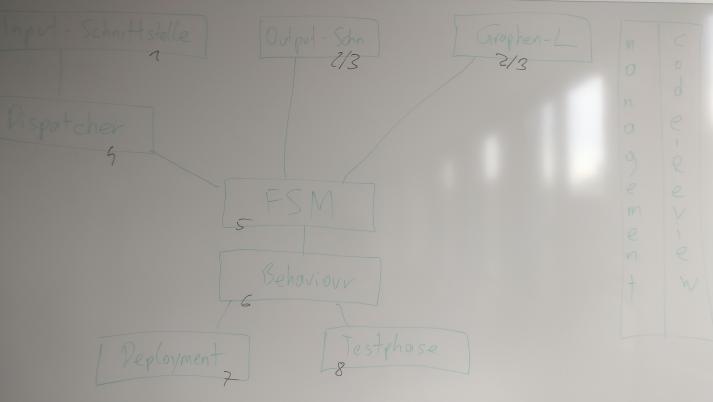 Input-Schnittstelle
1
Output-Schn
2/3
Graphen-L
2/3
Dispatcher
4
FSM
5
Behaviour
6
Deployment
7
Testphase
8
management
codereview